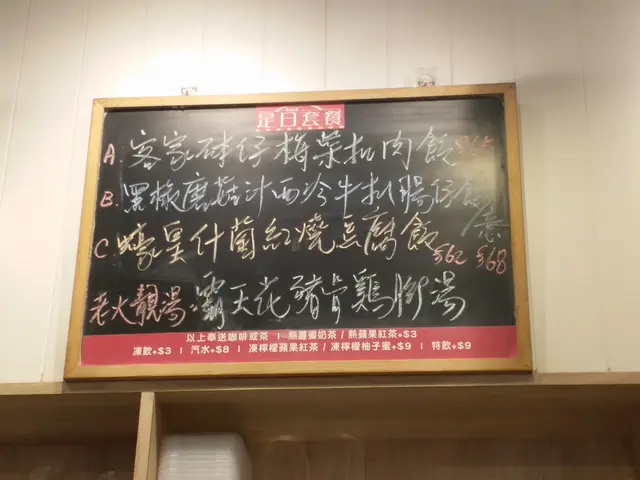 是日套餐
A. 客家砵仔梅菜扣肉飯 $65
B. 黑椒蘑菇汁西冷牛扒腸仔飯/意 $68
C. 蠔皇什菌紅燒豆腐飯 $62
老火靚湯:霸王花豬骨雞腳湯
以上奉送咖啡或茶 | 熱薑蜜奶茶 / 熱蘋果紅茶+$3
凍飲+$3 | 汽水+$8 | 凍檸檬蘋果紅茶 / 凍檸檬柚子蜜+$9 | 特飲+$9